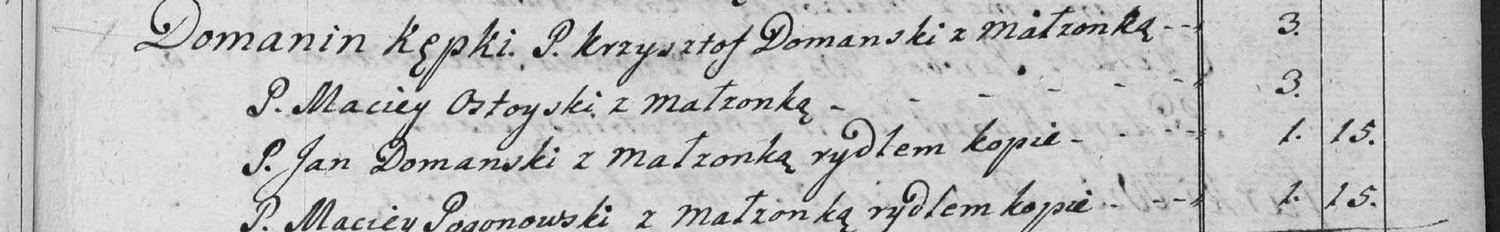 Domanin Kępki. P. Krzysztof Domanski z Małzonką - - 3.
P. Maciey Ostoyski z Małzonką - - - - - - 3.
P. Jan Domanski z Małzonką rydlem kopie - - - - 1. 15.
P. Maciey Pogonowski z Małzonką rydlem kopie - - - 1. 15.